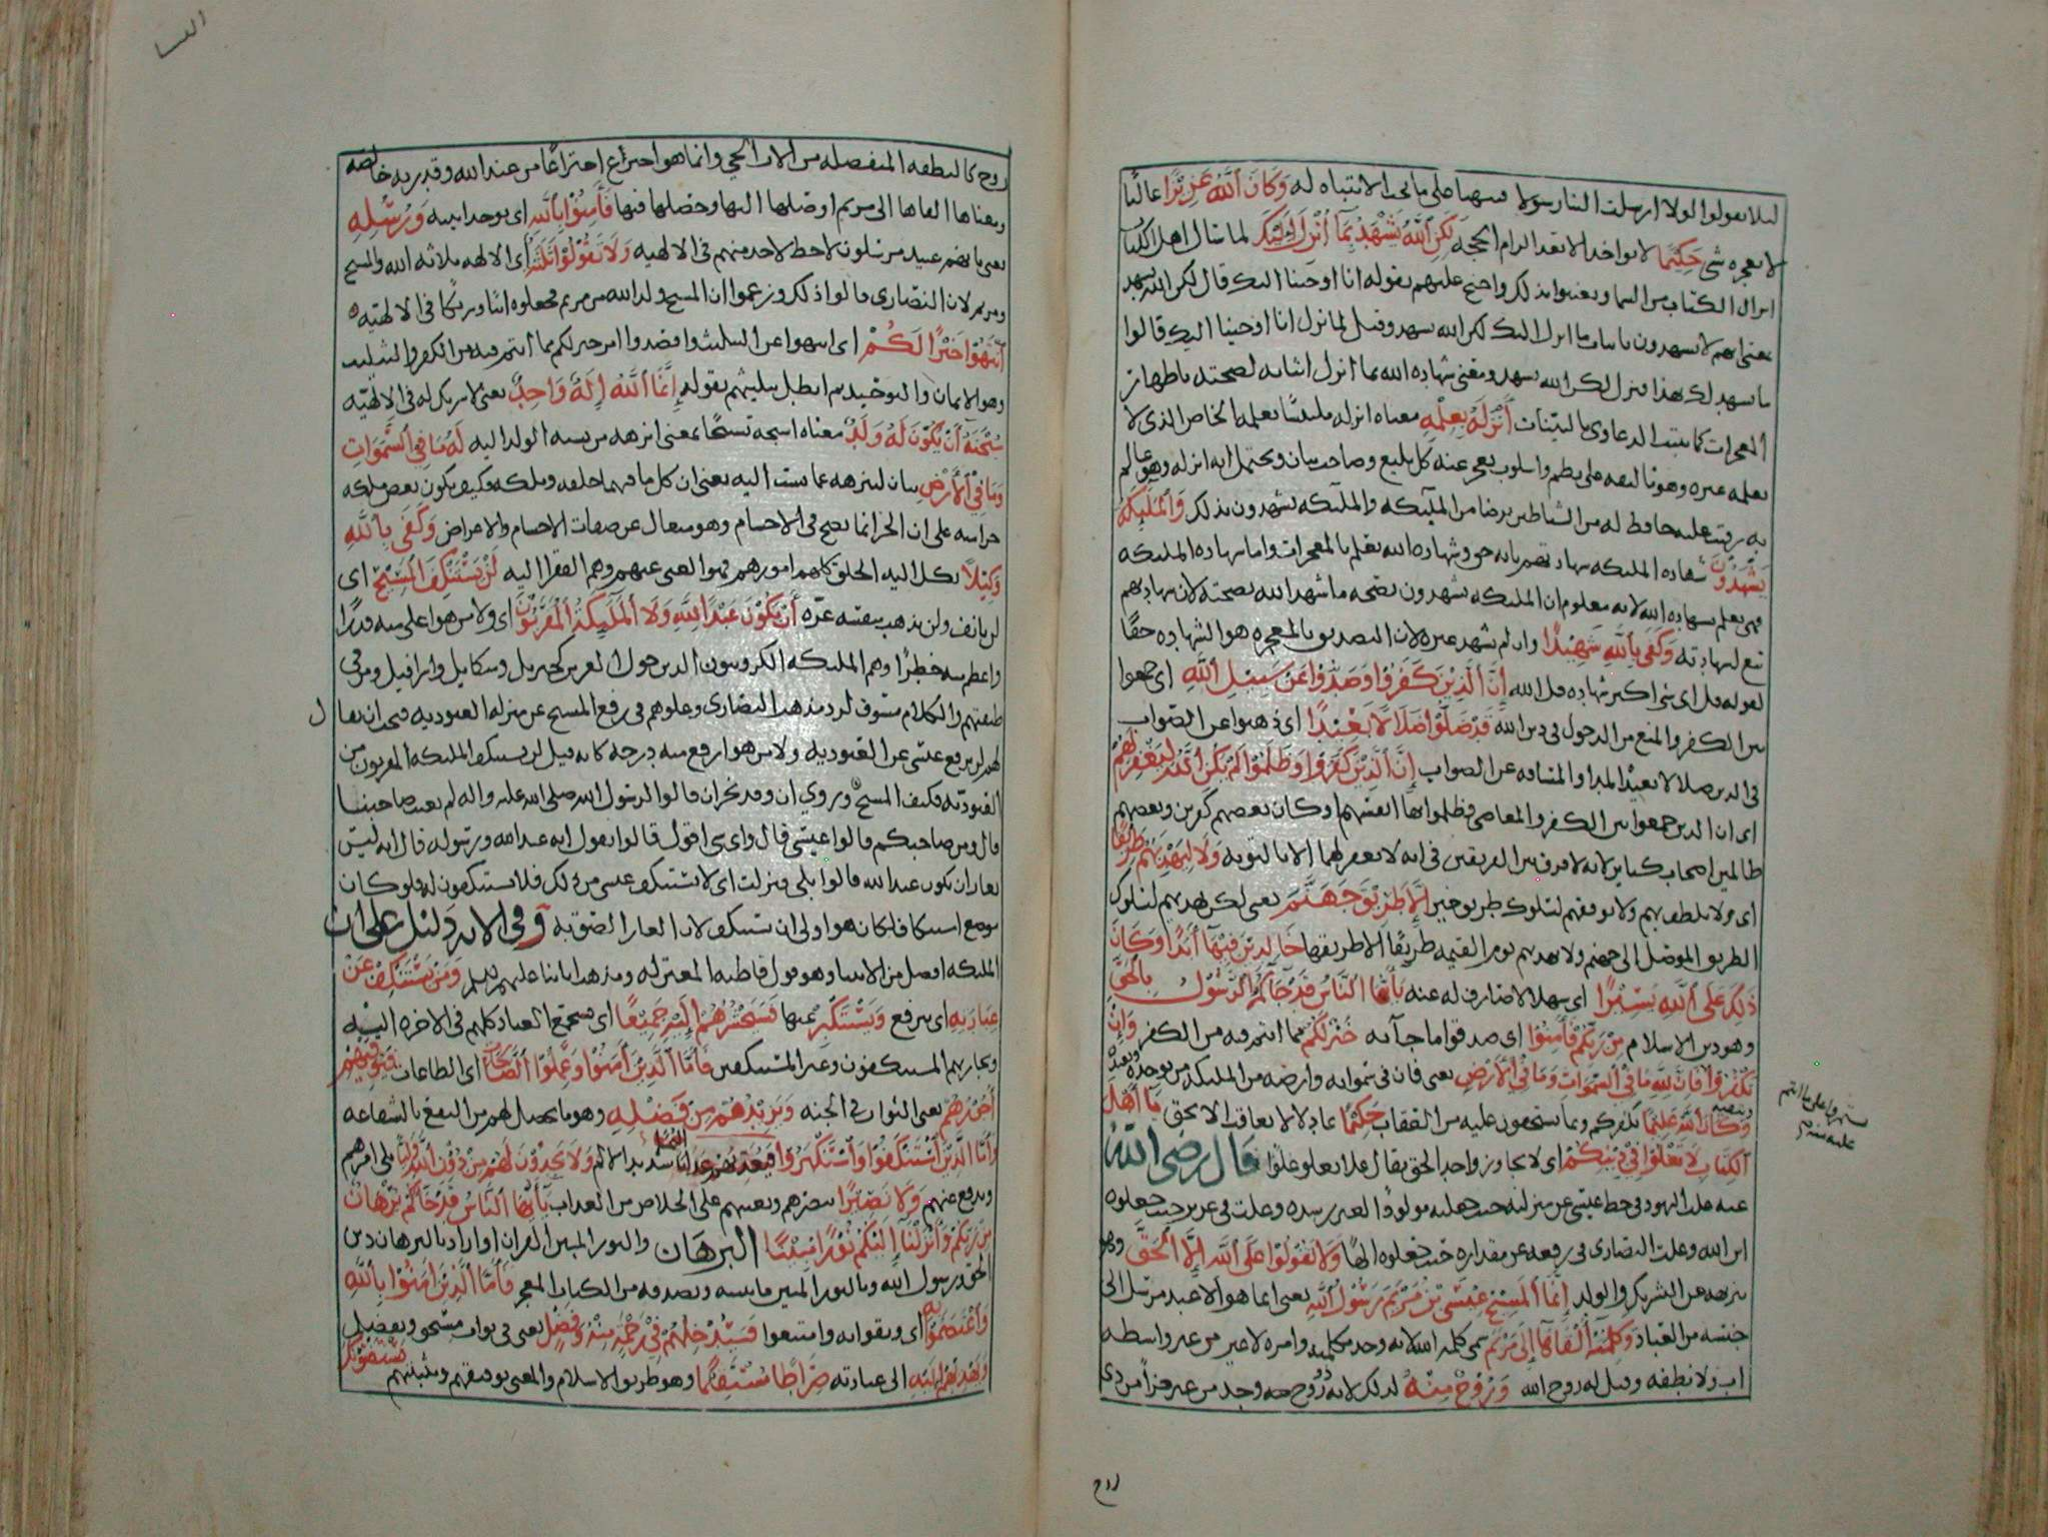 لئلا يقولوا لولا ارسلت الينا رسولا فينبهنا على ما يجب الانتباه له وَكَانَ ٱللَّهُ عَزِيْزًا غالبًا
لا يعجزه شي حَكِيْمًا لا يواخذ الا بعد الزام الحجه لَكِنِ ٱللَّهُ يَشْهَدُ بِمَآ أُنْزِلَ إِلَيْكَ لما سال اهل الكتاب
انزال الكتاب من السما وتعنتوا بذلك واحتج عليهم بقوله انا اوحينا اليك قال لكن الله يشهد
بمعنى انهم لا يشهدون باثبات ما انزل اليك لكن الله يشهد وقيل لما نزل انا اوحينا اليك قالوا
ما نشهد لك بهذا فنزل لكن الله يشهد ومعنى شهاده الله بما أنزل اثباته لصحته باظهار
المعجزات كما تثبت الدعاوى بالبينات أَنْزَلَهُ بِعِلْمِهِ معناه انزله ملتبسًا بعلمه الخاص الذى لا
يعلمه غيره وهو تاليفه على نظم واسلوب يعجز عنه كل بليغ وصاحب بيان ويحتمل انه انزله وهو عالم
به رقيب عليه حافظ له من الشياطين برصد من الملئكه والملئكه يشهدون بذلك وَٱلْمَلَٓئِكَةُ
يَشْهَدُوْنَ شهاده الملئكه شهاده تصديق بانه حق وشهاده الله تعلم بالمعجزات واما شهاده الملئكه
فهى تعلم بشهاده الله لانه معلوم ان الملئكه يشهدون بصحه ما شهد الله بصحته لان شهادتهم
تبع لشهادته وَكَفَى بِٱللَّهِ شَهِيْدًا وان لم يشهد غيره لان التصديق بالمعجزه هو الشهاده حقا
لقوله قل اى شى اكبر شهاده قل الله إِنَّ الَّذِيْنَ كَفَرُوْا وَصَدُّوْا عَنْ سَبِيْلِ ٱللَّهِ اى جمعوا
بين الكفر والمنع من الدخول فى دين الله قَدْ ضَلُّوْا ضَلَالًا بَعِيْدًا اى ذهبوا عن الصواب
فى الدين ضلالا بعيدًا لمدا والمسافه عن الصواب إِنَّ الَّذِيْنَ كَفَرُوْا وَظَلَمُوْا لَمْ يَكُنِ ٱللَّهُ لِيَغْفِرَ لَهُمْ
اى ان الذين جمعوا بين الكفر والمعاصى فظلموا بها انفسهم او كان بعضهم كافرين وبعضهم
ظالمين اصحاب كبائر لانه لا فرق بين الفريقين فى انه لا يغفر لهما الا بالتوبه وَلَا لِيَهْدِيَهُمْ طَرِيْقًا
اى ولا يلطف بهم ولا يوفقهم لسلوك طريق خير إِلَّا طَرِيْقَ جَهَنَّمَ يعنى لكن يهديهم لسلوك
الطريق الموصل الى جهنم ولا يهديهم يوم القيمه طريقًا الا طريقها خَالِدِيْنَ فِيْهَآ أَبَدًا وَكَانَ
ذَلِكَ عَلَى ٱللَّهِ يَسِيْرًا اى سهلا لا صارف له عنه يَٓأَيُّهَا النَّاسُ قَدْ جَآءَكُمُ ٱلرَّسُوْلُ بِالْحَقِّ
وهو دين الاسلام مِنْ رَبِّكُمْ فَآمِنُوْا اى صدقوا ما جآ به خَيْرًا لَكُمْ مما انتم فيه من الكفر وَإِنْ
تَكْفُرُوْا فَإِنَّ لِلَّهِ مَا فِي ٱلسَّمَوَاتِ وَمَا فِي ٱلْأَرْضِ يعنى فان فى سمواته وارضه من الملئكه من يوحده ويعبده
وَكَانَ ٱللَّهُ عَلِيْمًا بكفركم وبما تستحقون عليه من العقاب حَكِيْمًا عادلا لا يعاقب الا بحق يَا أَهْلَ
ٱلْكِتَابِ لَا تَغْلُوْا فِيْ دِيْنِكُمْ اى لا تجاوزوا حد الحق يقال غلا يغلو غلوا قال رضى الله
عنه غلت اليهود فى حط عيسى عن منزلته حيث جعلته مولودًا لغير رشده وغلت فى عزير حيث جعلوه
ابن الله وغلت النصارى فى رفعه عن مقداره حيث جعلوه الهًا وَلَا تَقُوْلُوْا عَلَى ٱللَّهِ إِلَّا ٱلْحَقَّ وهو
تنزيهه عن الشريك والولد إِنَّمَا ٱلْمَسِيْحُ عِيْسَى بْنُ مَرْيَمَ رَسُوْلُ ٱللَّهِ يعنى انما هو الا عبد مرسل الى
جنسه من العباد وَكَلِمَتُهُ أَلْقَاهَآ إِلَى مَرْيَمَ سمى كلمه الله لانه وجد بكلمته وامره لا غير من غير واسطه
اب ولا نطفه وقيل له روح الله وَرُوْحٌ مِنْهُ لذلك لانه ذو روح وجد من غير جزأ من ذى
روح
النسا
روح كالنطفه المنفصله من الاب الحي وانما هو اخترع اختراعًا من عند الله وقدرته خالصه
ومعناها القاها الى مريم اوصلها اليها وحصلها فيها فَآمِنُوْا بِٱللَّهِ اى بوحدانيته وَرُسُلِهِ
يعنى بانهم عبيد مرسلون لا حظ لاحد منهم فى الالهيه وَلَا تَقُوْلُوْا ثَلَثَةٌ أى الالهه ثلاثه الله والمسيح
ومريم لان النصارى قالوا ذلك وزعموا ان المسيح ولد الله من مريم فجعلوه ابنًا وشريكا فى الالهيه
ٱنْتَهُوْا خَيْرًا لَكُمْ اى انتهوا عن التثليث واقصدوا امرا خيرا لكم مما انتم فيه من الكفر والتثليث
وهو الايمان والتوحيد ثم ابطل تثليثهم بقوله إِنَّمَا ٱللَّهُ إِلَهٌ وَاحِدٌ يعنى لا شريك له فى الالهيه
سُبْحَنَهُ أَنْ يَكُوْنَ لَهُ وَلَدٌ معناه اسبحه تسبيحًا بمعنى انزهه من نسبه الولد اليه لَهُ مَا فِي ٱلسَّمَوَاتِ
وَمَا فِي ٱلْأَرْضِ بيان لتنزهه عما نسب اليه يعنى ان كل ما فيهما خلقه وملكه فكيف يكون بعض ملكه
جزا منه على ان الجزا انما يصح فى الاجسام وهو متعال عن صفات الاجسام والاعراض وَكَفَى بِٱللَّهِ
وَكِيْلًا يكل اليه الخلق كلهم امورهم فهو الغنى عنهم وهم الفقرا اليه لَنْ يَسْتَنْكِفَ ٱلْمَسِيْحُ اى
لن يانف ولن يذهب بنفسه عزه أَنْ يَكُوْنَ عَبْدًا لِلَّهِ وَلَا ٱلْمَلَٓئِكَةُ ٱلْمُقَرَّبُوْنَ اى ولا من هو اعلى منه قدرًا
واعظم منه خطرًا وهم الملئكه الكروبيون الذين حول العرش كجبريل وميكايل واسرافيل ومن فى
طبقتهم والكلام مسوق لرد مذهب النصارى وغلوهم فى رفع المسيح عن منزله العبوديه فيجب ان يقال
لهم لن يرفع عيسى عن العبوديه ولا من هو ارفع منه درجه كانه قيل لن يستنكف الملئكه المقربون من
العبوديه فكيف المسيح وروي ان وفد نجران قالوا لرسول الله صلى الله عليه واله لم تعيب صاحبنا
قال ومن صاحبكم قالوا عيسى قال واى شى اقول قالوا تقول انه عبد الله ورسوله قال انه ليس
بعار ان يكون عبد الله قالوا بلى فنزلت اى لا يستنكف عيسى من ذلك فلا تستنكفون له فلو كان
موضع استنكاف لكان هو اولى ان يستنكف لان العار الصق به وفى الايه دليل على ان
الملئكه افضل من الانبيا وهو قول قاطبه المعتزله ومذهب ابائنا عليهم السلم وَمَنْ يَسْتَنْكِفْ عَنْ
عِبَادَتِهِ اى يترفع وَيَسْتَكْبِرْ عنها فَسَيَحْشُرُهُمْ إِلَيْهِ جَمِيْعًا اى فيجمع العباد كلهم فى الاخره اليه
ويجازيهم المستنكفون وغير المستنكفين فَأَمَّا ٱلَّذِيْنَ آمَنُوْا وَعَمِلُوْا ٱلصَّالِحَاتِ اى الطاعات فَيُوَفِّيْهِمْ
أُجُوْرَهُمْ يعنى الثواب فى الجنه وَيَزِيْدُهُمْ مِنْ فَضْلِهِ وهو ما يحصل لهم من النفع بالشفاعه
وَأَمَّا ٱلَّذِيْنَ ٱسْتَنْكَفُوْا وَٱسْتَكْبَرُوْا فَيُعَذِّبُهُمْ عَذَابًا أَلِيْمًا شديد الالم وَلَا يَجِدُوْنَ لَهُمْ مِنْ دُوْنِ ٱللَّهِ وَلِيًّا يلى امرهم
ويدفع عنهم وَلَا نَصِيْرًا ينصرهم ويعينهم على الخلاص من العذاب يَٓأَيُّهَا النَّاسُ قَدْ جَآءَكُمْ بُرْهَانٌ
مِنْ رَبِّكُمْ وَأَنْزَلْنَآ إِلَيْكُمْ نُوْرًا مُبِيْنًا البرهان والنور المبين القران او اراد بالبرهان دين
الحق ورسول الله وبالنور المبين ما يبينه ويصدقه من الكتاب المعجز فَأَمَّا ٱلَّذِيْنَ آمَنُوْا بِٱللَّهِ
وَٱعْتَصَمُوْا بِهِ اى وثقوا به وامتنعوا فَسَيُدْخِلُهُمْ فِيْ رَحْمَةٍ مِنْهُ وَفَضْلٍ يعنى فى ثواب مستحق وتفضل
وَيَهْدِيْهِمْ إِلَيْهِ الى عبادته صِرَاطًا مُسْتَقِيْمًا وهو طريق الاسلام والمعنى يوفقهم ويثبتهم